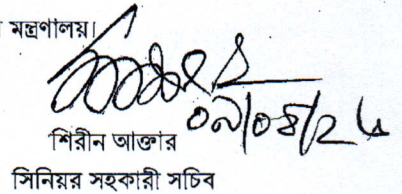 মন্ত্রণালয়।
০৯/০৪/২৬
শিরীন আক্তার
সিনিয়র সহকারী সচিব